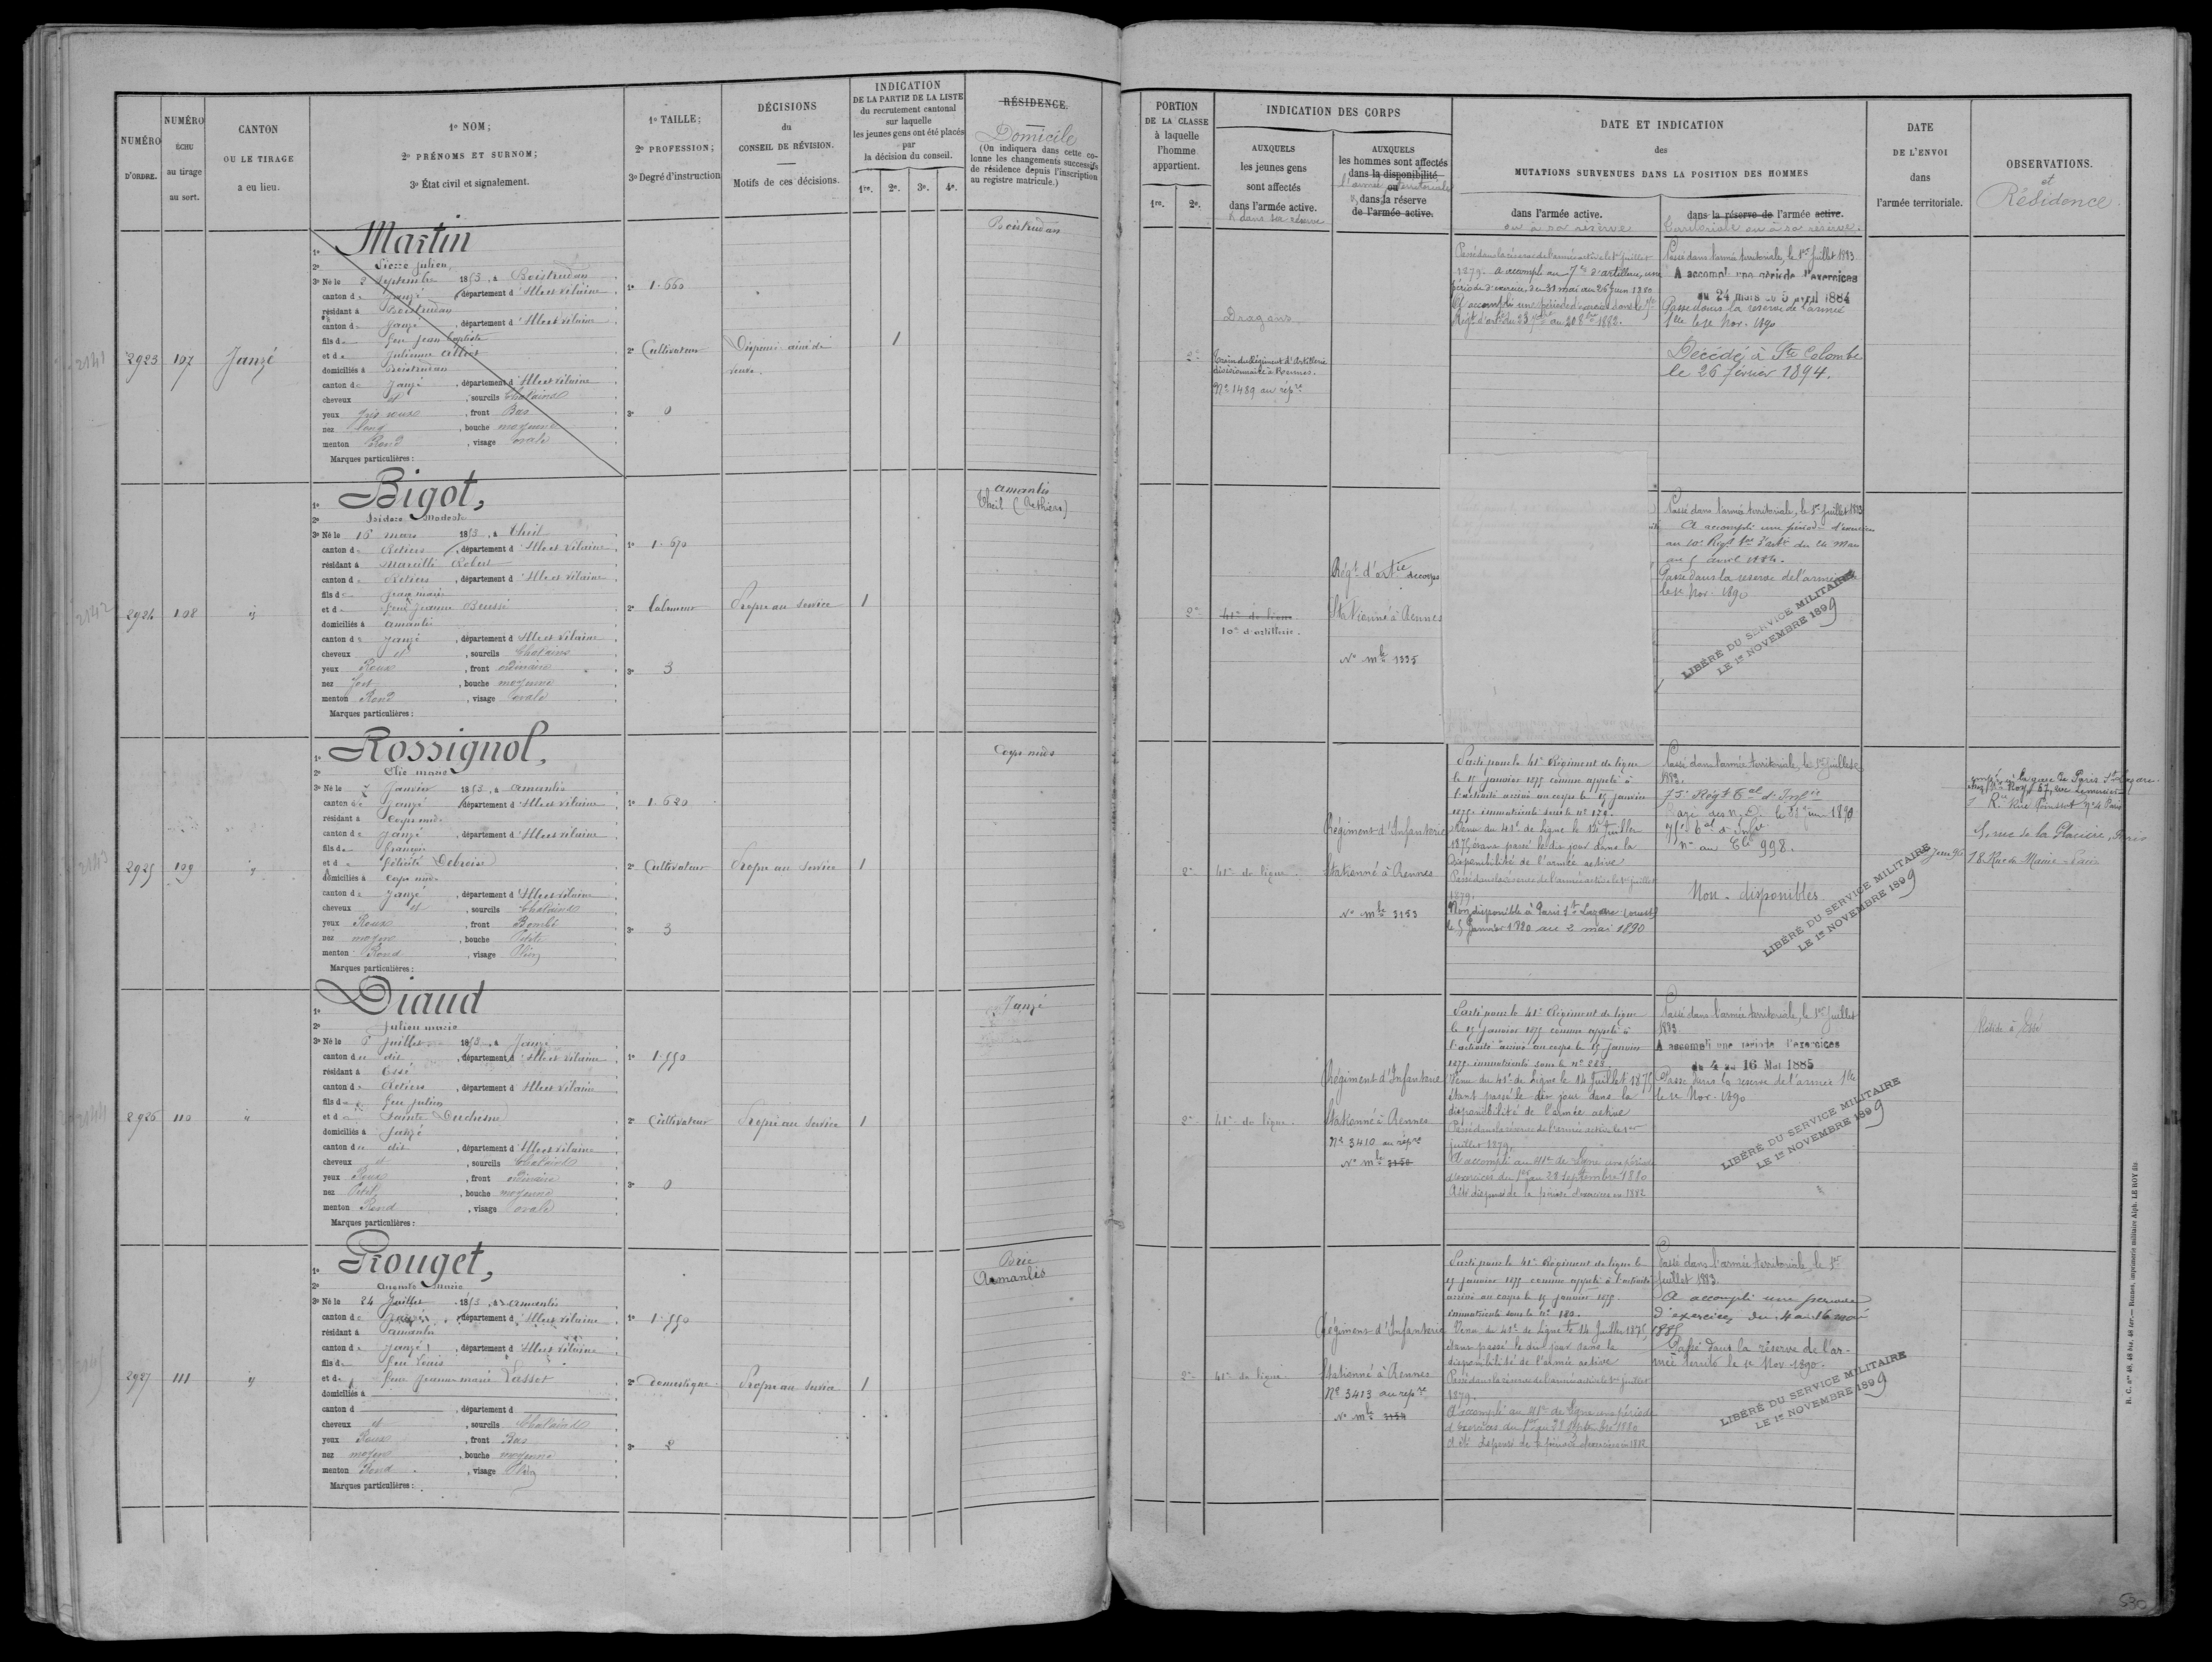 NUMÉRO D'ORDRE.
NUMÉRO ÉCHU au tirage au sort.
CANTON OU LE TIRAGE a eu lieu.
1º NOM;
2º PRÉNOMS ET SURNOM;
3º État civil et signalement.
1º TAILLE;
2º PROFESSION;
3º Degré d'instruction
DÉCISIONS
du
CONSEIL DE RÉVISION.
Motifs de ces décisions.
INDICATION
DE LA PARTIE DE LA LISTE
du recrutement cantonal
sur laquelle
les jeunes gens ont été placés
par
la décision du conseil.
1re. 2e. 3e. 4e.
RÉSIDENCE.
Domicile
(On indiquera dans cette co-
lonne les changements successifs
de résidence depuis l'inscription
au registre matricule.)
2141
2923 107 Janzé
1º Martin
2º Pierre Julien
3º Né le 2 Septembre 1853, à Boistrudan
canton de Janzé, département d'Ille et Vilaine
résidant à Boistrudan
canton de Janzé, département d'Ille et Vilaine
fils de feu Jean Baptiste
et de Julienne
domiciliés à Boistrudan
canton de Janzé, département d'Ille et Vilaine
cheveux et, sourcils Chatains
yeux Gris roux, front Bas
nez long, bouche moyenne
menton Rond, visage ovale
Marques particulières:
1º 1.660
2º Cultivateur
3º 0
Dispensé ainé de
veuve.
1
Boistrudan
2142
2924 108 id
1º Bigot,
2º Isidore Modeste
3º Né le 16 mars 1853, à Theil
canton de Retiers, département d'Ille et Vilaine
résidant à Marcillé Robert
canton de Retiers, département d'Ille et Vilaine
fils de Jean marie
et de feue Jeanne
domiciliés à amanlis
canton de Janzé, département d'Ille et Vilaine
cheveux et, sourcils Chatains
yeux Roux, front ordinaire
nez fort, bouche moyenne
menton Rond, visage ovale
Marques particulières:
1º 1.670
2º Laboureur
3º 3
Propre au service
1
amanlis
Theil (Rethiers)
2143
2925 109 id
1º Rossignol,
2º Elie marie
3º Né le 7 Janvier 1853, à amanlis
canton de Janzé, département d'Ille et Vilaine
résidant à Corps nuds
canton de Janzé, département d'Ille et Vilaine
fils de François
et de Félicité Debroise
domiciliés à Corps nuds
canton de Janzé, département d'Ille et Vilaine
cheveux et, sourcils Chatains
yeux Roux, front Bombé
nez moyen, bouche Petite
menton Rond, visage Plein
Marques particulières:
1º 1.620
2º Cultivateur
3º 3
Propre au service
1
Corps nuds
2144
2926 110 id
1º Diaud
2º Julien marie
3º Né le 6 Juillet 1853, à Janzé
canton de dit, département d'Ille et Vilaine
résidant à Essé
canton de Retiers, département d'Ille et Vilaine
fils de feu Julien
et de Sainte Duchesne
domiciliés à Janzé
canton de dit, département d'Ille et Vilaine
cheveux et, sourcils Chatains
yeux Roux, front ordinaire
nez Petit, bouche moyenne
menton Rond, visage ovale
Marques particulières:
1º 1.550
2º Cultivateur
3º 0
Propre au service
1
Janzé
2927 111 id
1º Rouget,
2º Auguste Marie
3º Né le 24 Juillet 1853, à amanlis
canton de Janzé, département d'Ille et Vilaine
résidant à amanlis
canton de Janzé, département d'Ille et Vilaine
fils de feu Louis
et de feue Jeanne marie
domiciliés à
canton d, département d
cheveux et, sourcils Chatains
yeux Roux, front Bas
nez moyen, bouche moyenne
menton Rond, visage Plein
Marques particulières:
1º 1.550
2º Domestique
3º 2
Propre au service
1
Brie
Amanlis
PORTION
DE LA CLASSE
à laquelle
l'homme
appartient.
1re. 2e.
INDICATION DES CORPS
AUXQUELS
les jeunes gens
sont affectés
dans l'armée active.
& dans sa réserve
AUXQUELS
les hommes sont affectés
dans la disponibilité
ou
l'armée territoriale
& dans la réserve
de l'armée active.
DATE ET INDICATION
des
MUTATIONS SURVENUES DANS LA POSITION DES HOMMES
dans l'armée active.
ou à sa réserve
dans la réserve de l'armée active.
territoriale ou à sa réserve
DATE
DE L'ENVOI
dans
l'armée territoriale.
OBSERVATIONS.
et
Résidence.
2e
Dragons
Train du Régiment d'Artillerie
divisionnaire à Rennes.
Nº 1489 au répre
Passé dans la réserve de l'armée active le 1er Juillet
1879. A accompli au 7e d'artillerie, une
période d'exercice du 31 mai au 26 Juin 1880
A accompli une période d'exercices dans le 7e
Régt d'artie du 23 7bre au 20 8bre 1882.
Passé dans l'armée territoriale, le 1er Juillet 1883
A accompli une période d'exercices
du 24 mars au 5 avril 1884
Passé dans la réserve de l'armée
tlle le 1e Nov. 1890
Décédé à Ste Colombe
le 26 février 1894.
2e
41e de ligne
10e d'artillerie.
Régt d'artie de corps
Stationné à Rennes
Nº mle 1335
Passé dans l'armée territoriale, le 1er Juillet 1883
A accompli une période d'exercices
au 10e Régt tal d'artie du 24 Mars
au 5 avril 1884.
Passé dans la réserve de l'armée
le 1e Nov. 1890
LIBÉRÉ DU SERVICE MILITAIRE
LE 1er NOVEMBRE 1899
2e
41e de ligne
Régiment d'Infanterie
Stationné à Rennes
Nº mle 3153
Parti pour le 41e Régiment de ligne
le 15 janvier 1875 comme appelé à
l'activité arrivé au corps le 15 janvier
1875 immatriculé sous le nº 179.
Venu du 41e de ligne le 14 Juillet
1875, étant passé le dit jour dans la
disponibilité de l'armée active
Passé dans la réserve de l'armée active le 1er juillet
1879.
Non disponible à Paris St Lazare (ouest)
le 5 Janvier 1880 au 2 mai 1890
Passé dans l'armée territoriale, le 1er Juillet
1883.
75e Régt tal d'Infie
Rayé des n. D. le 1890
75e tal d'Infie
nº au Cle 998.
Non-disponibles
LIBÉRÉ DU SERVICE MILITAIRE
LE 1er NOVEMBRE 1899
employé à la gare de Paris St Lazare
Rue Poinsot nº 4 Paris
5, rue de la Glacière, Paris
18 Rue du Maine Paris
2e
41e de ligne.
Régiment d'Infanterie
Stationné à Rennes
Nº 3410 au répre
Nº mle 3150
Parti pour le 41e Régiment de ligne
le 15 janvier 1875 comme appelé à
l'activité arrivé au corps le 15 janvier
1875 immatriculé sous le nº 283.
Venu du 41e de Ligne le 14 Juillet 1875
étant passé le dit jour dans la
disponibilité de l'armée active
Passé dans la réserve de l'armée active le 1er
juillet 1879.
A accompli au 41e de Ligne une période
d'exercices du 1er au 28 septembre 1880
A été dispensé de la période d'exercices en 1882
Passé dans l'armée territoriale, le 1er Juillet
1883.
A accompli une période d'exercices
du 4 au 16 Mai 1885
Passé dans la réserve de l'armée tlle
le 1e Nov. 1890
LIBÉRÉ DU SERVICE MILITAIRE
LE 1er NOVEMBRE 1899
Réside à Essé
2e
41e de ligne
Régiment d'Infanterie
Stationné à Rennes
Nº 3413 au répre
Nº mle 3154
Parti pour le 41e Régiment de ligne le
15 janvier 1875 comme appelé à l'activité
arrivé au corps le 15 janvier 1875.
immatriculé sous le nº 180.
Venu du 41e de Ligne le 14 Juillet 1875,
étant passé le dit jour dans la
disponibilité de l'armée active
Passé dans la réserve de l'armée active le 1er juillet
1879.
A accompli au 41e de Ligne une période
d'exercices du 1er au 28 Septembre 1880
A été dispensé de la période d'exercices en 1882
Passé dans l'armée territoriale, le 1er
Juillet 1883.
A accompli une période
d'exercices du 4 au 16 mai
1885
Passé dans la réserve de l'ar-
mée territle le 1e Nov 1890.
LIBÉRÉ DU SERVICE MILITAIRE
LE 1er NOVEMBRE 1899
R. C. nos 48, 48 bis, 48 ter. — Rennes, imprimerie militaire Alph. LE ROY fils
530